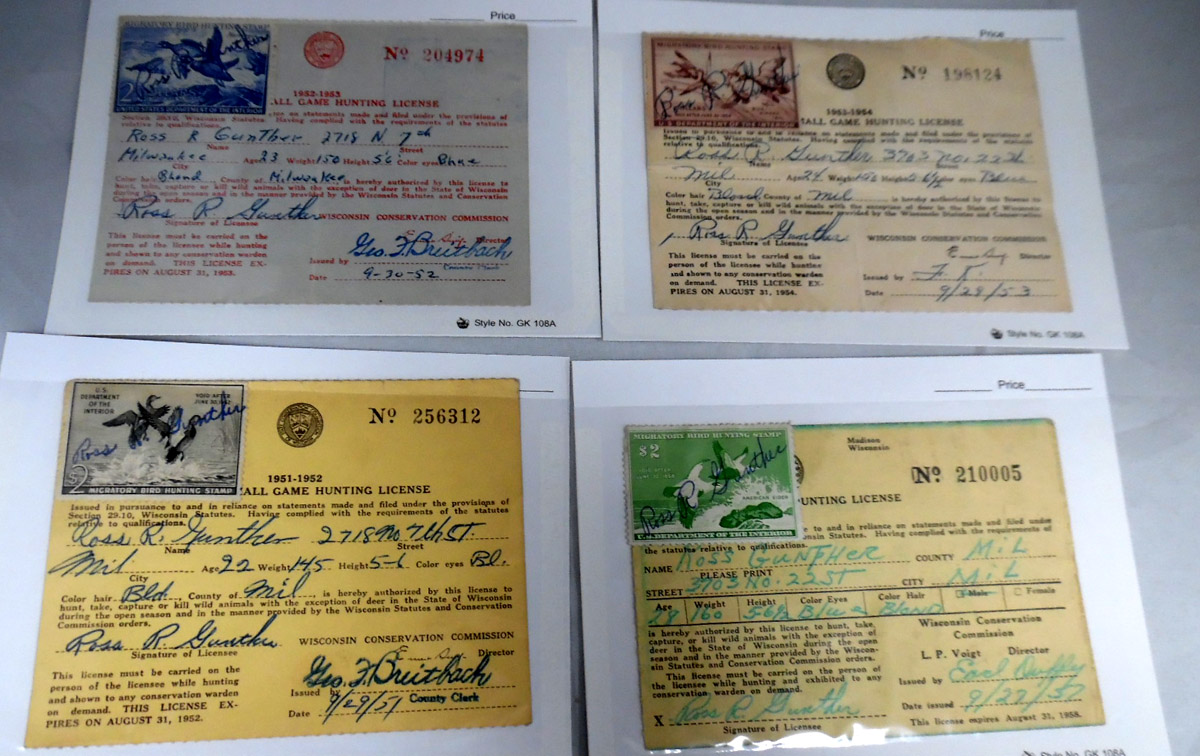 Price
MIGRATORY BIRD HUNTING STAMP
Ross R Gunther
UNITED STATES DEPARTMENT OF THE INTERIOR
Nº 204974
1952-1953
ALL GAME HUNTING LICENSE
Section 29.10, Wisconsin Statutes. Having complied with the requirements of the statutes
relative to qualifications.
Ross R Gunther 2718 N. 7th
Name Street
Milwaukee Age 23 Weight 150 Height 5'6" Color eyes Blue
City
Color hair Blond, County of Milwaukee, is hereby authorized by this license to
hunt, take, capture or kill wild animals with the exception of deer in the State of Wisconsin
during the open season and in the manner provided by the Wisconsin Statutes and Conservation
Commission orders.
Ross R. Gunther WISCONSIN CONSERVATION COMMISSION
Signature of Licensee
Director
This license must be carried on the
person of the licensee while hunting
and shown to any conservation warden
on demand. THIS LICENSE EX-
PIRES ON AUGUST 31, 1953.
Geo. F. Breitbach
Issued by
County Clerk
Date 9-30-52
Style No. GK 108A
Price
MIGRATORY BIRD HUNTING STAMP
Ross R. Gunther
U.S. DEPARTMENT OF THE INTERIOR
Nº 198124
1953-1954
ALL GAME HUNTING LICENSE
Issued in pursuance to and in reliance on statements made and filed under the provisions of
Section 29.10, Wisconsin Statutes. Having complied with the requirements of the statutes
relative to qualifications.
Ross R. Gunther 3703 No. 22 St
Name
Mil Age 24 Weight 150 Height Color eyes Blue
City
Color hair Blond, County of Mil, is hereby authorized by this license to
hunt, take, capture or kill wild animals with the exception of deer in the State of Wisconsin
during the open season and in the manner provided by the Wisconsin Statutes and Conservation
Commission orders.
Ross R. Gunther WISCONSIN CONSERVATION COMMISSION
Signature of Licensee
Director
This license must be carried on the
person of the licensee while hunting
and shown to any conservation warden
on demand. THIS LICENSE EX-
PIRES ON AUGUST 31, 1954.
Issued by
Date 9/28/53
Style No. GK 108A
U.S.
DEPARTMENT
OF THE
INTERIOR
VOID AFTER
JUNE 30, 1952
Ross R. Gunther
$2
MIGRATORY BIRD HUNTING STAMP
Nº 256312
1951-1952
ALL GAME HUNTING LICENSE
Issued in pursuance to and in reliance on statements made and filed under the provisions of
Section 29.10, Wisconsin Statutes. Having complied with the requirements of the statutes
relative to qualifications.
Ross R. Gunther 2718 No 7th St.
Name Street
Mil Age 22 Weight 145 Height 5-6 Color eyes Bl.
City
Color hair Bld., County of Mil, is hereby authorized by this license to
hunt, take, capture or kill wild animals with the exception of deer in the State of Wisconsin
during the open season and in the manner provided by the Wisconsin Statutes and Conservation
Commission orders.
Ross R. Gunther WISCONSIN CONSERVATION COMMISSION
Signature of Licensee
Director
This license must be carried on the
person of the licensee while hunting
and shown to any conservation warden
on demand. THIS LICENSE EX-
PIRES ON AUGUST 31, 1952.
Geo. F. Breitbach
Issued by County Clerk
Date 9/29/51
Price
MIGRATORY BIRD HUNTING STAMP
$2
Ross R. Gunther
AMERICAN EIDER
U.S. DEPARTMENT OF THE INTERIOR
Madison
Wisconsin
Nº 210005
UNTING LICENSE
to and in reliance on statements made and filed under
nsin Statutes. Having complied with the requirements of
the statutes relative to qualifications.
NAME ROSS GUNTHER COUNTY MIL
PLEASE PRINT
STREET 3703 NO. 22 ST CITY MIL
Age Weight Height Color Eyes Color Hair Male Female
28 160 Blue Blond
is hereby authorized by this license to hunt, take,
capture, or kill wild animals with the exception of
deer in the State of Wisconsin during the open
season and in the manner provided by the Wiscon-
sin Statutes and Conservation Commission orders.
This license must be carried on the person of
the licensee while hunting and exhibited to any
conservation warden on demand.
X Ross R Gunther
Signature of Licensee
Wisconsin Conservation
Commission
L. P. Voigt Director
Issued by
Date issued 9/27/57
This license expires August 31, 1958.
Style No. GK 108A